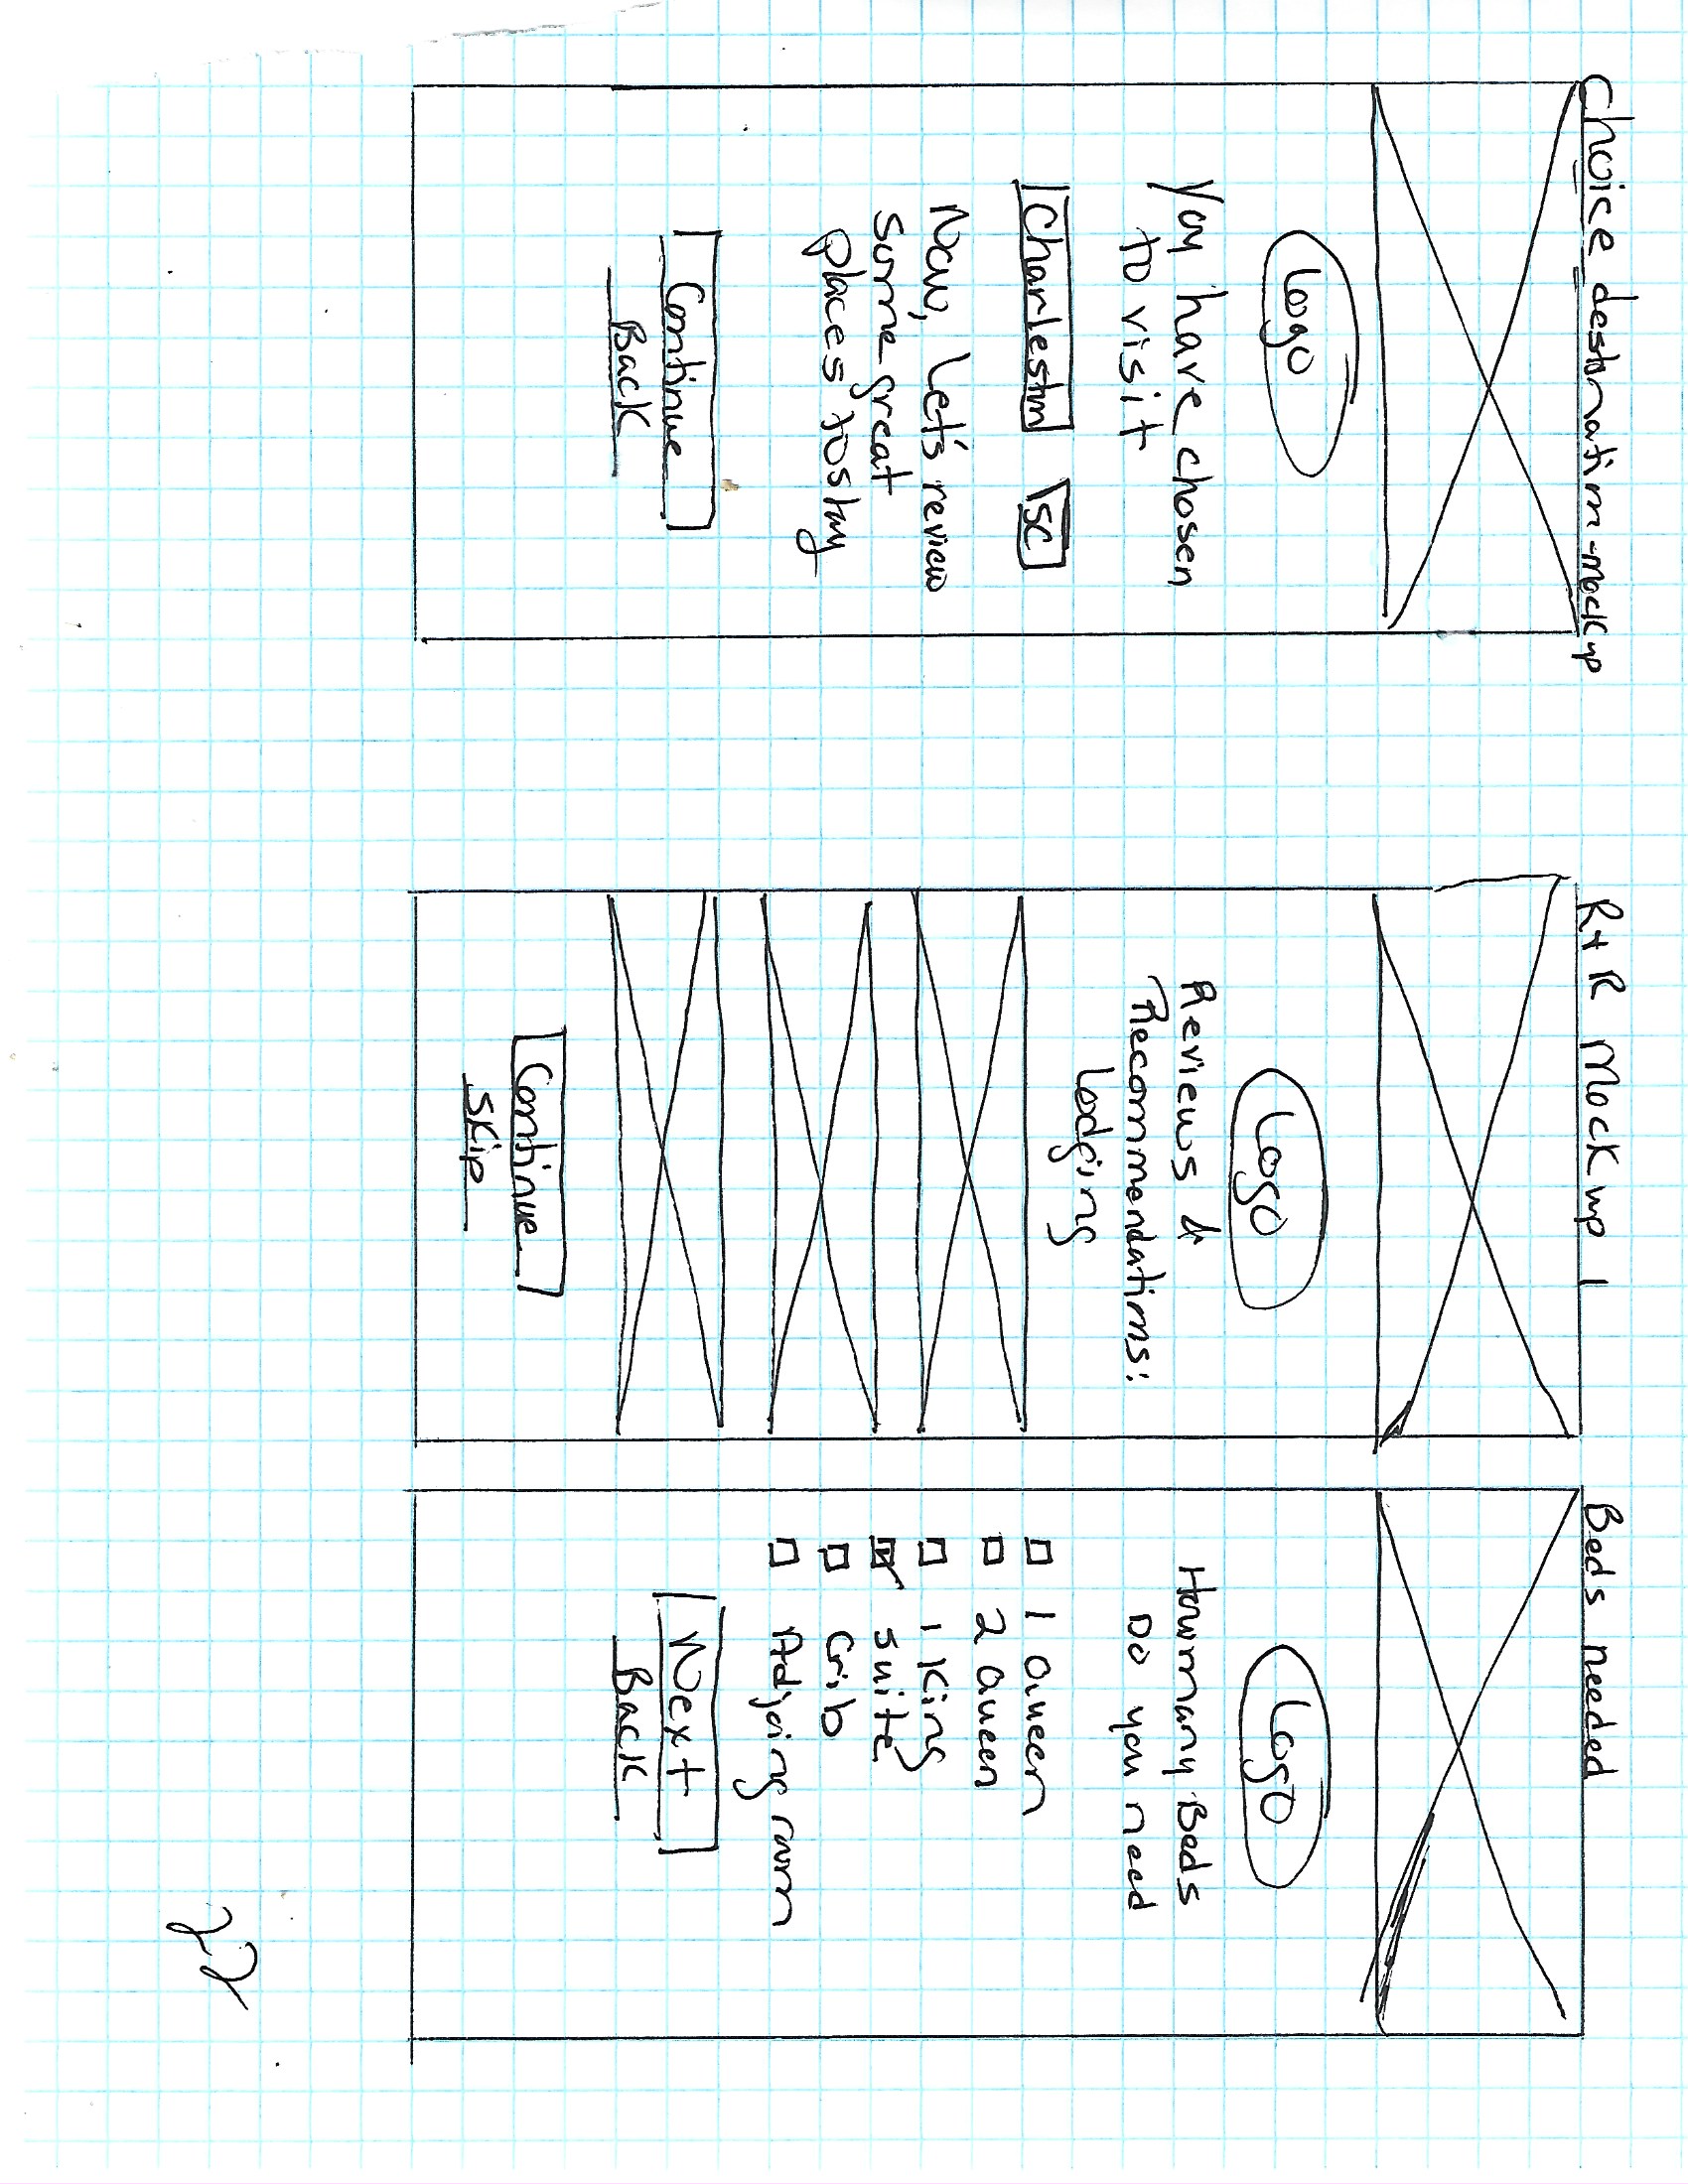 Choice destination-mockup
Logo
You have chosen
to visit
Charleston SC
Now, Let's review
some great
places to stay
Continue
Back
R+R Mock up 1
Logo
Reviews &
Recommendations:
Lodging
Continue
Skip
Beds needed
Logo
How many Beds
Do you need
1 Queen
2 Queen
1 King
suite
Crib
Adjoing room
Next
Back